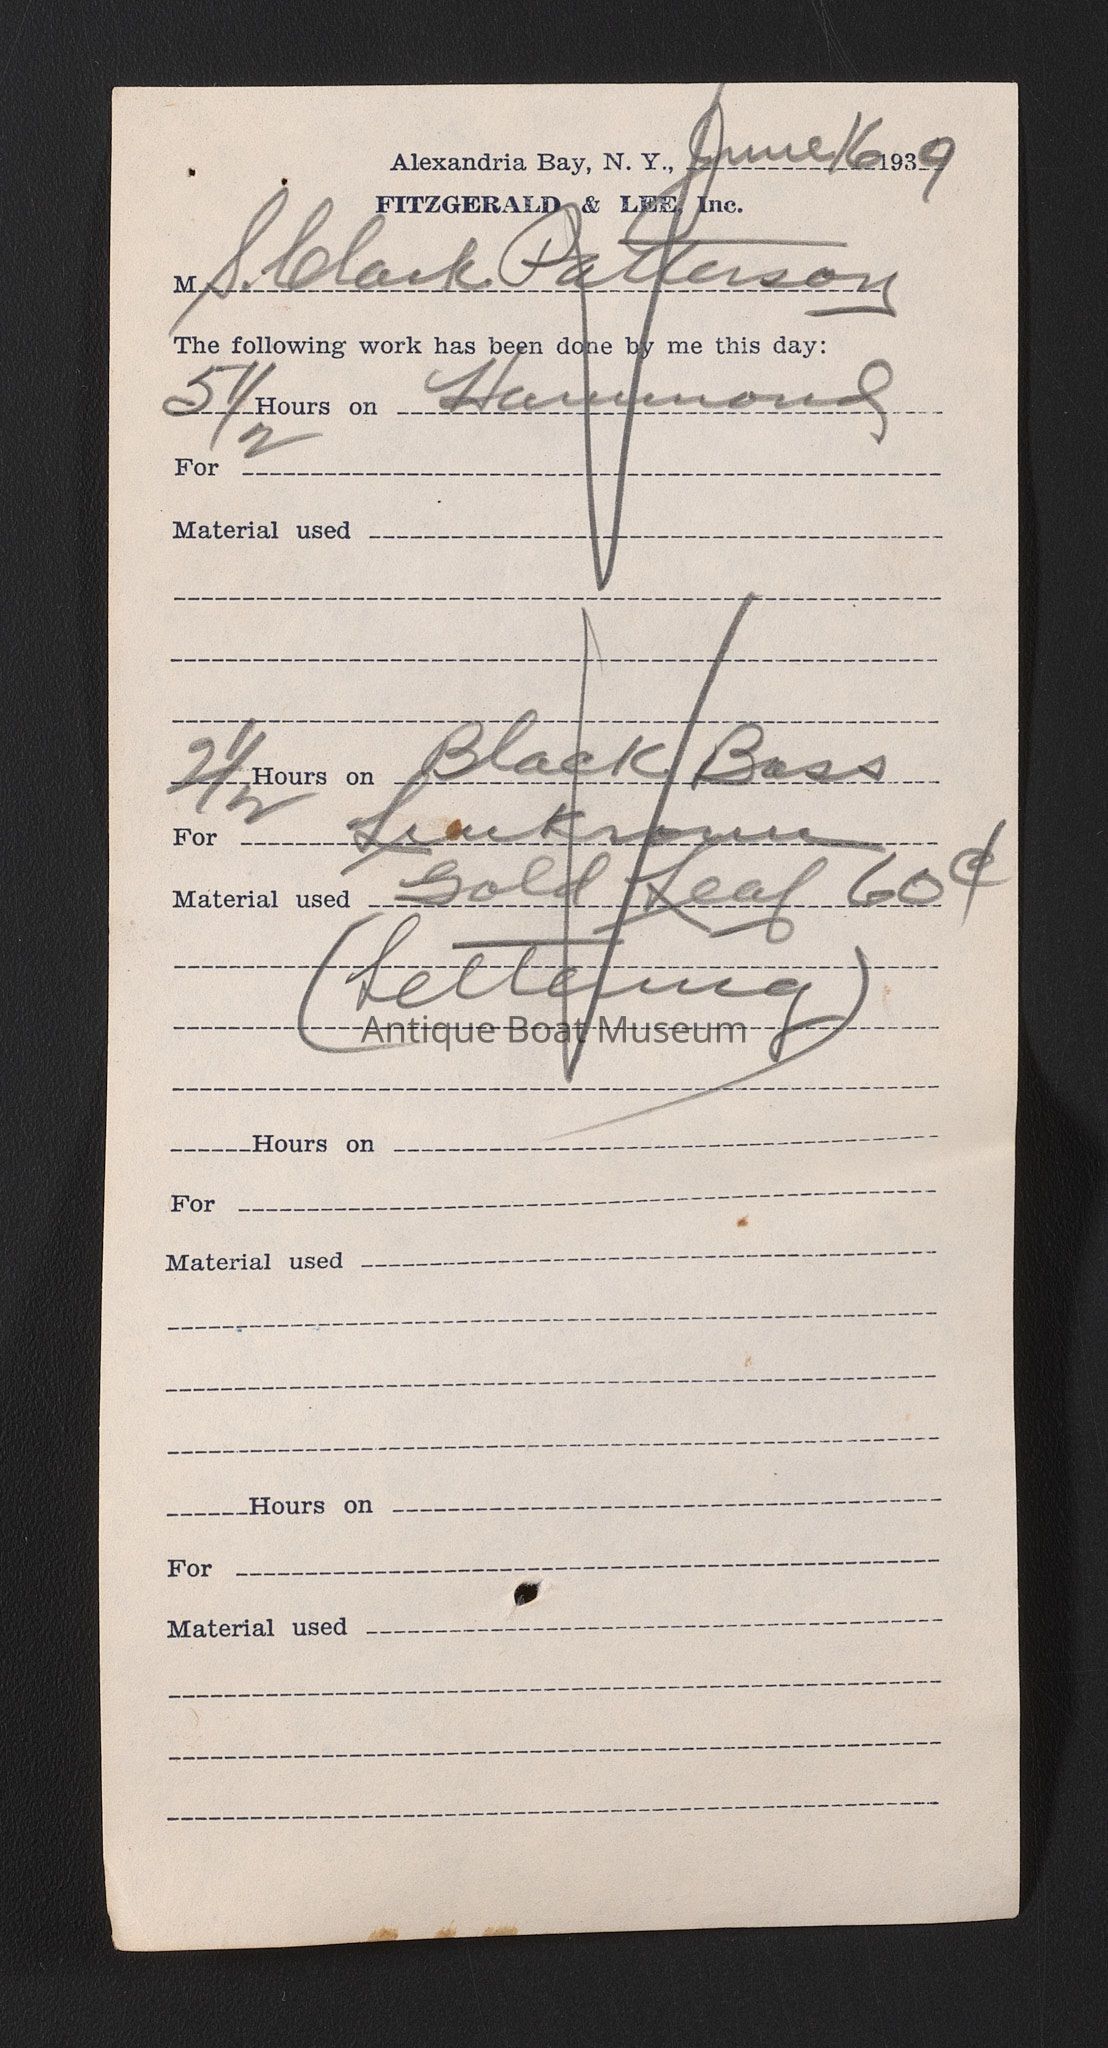 Alexandria Bay, N. Y., June 16 1939
FITZGERALD & LEE, Inc.
M S. Clark Patterson
The following work has been done by me this day:
5 1/2 Hours on Hammond
For
Material used
2 1/2 Hours on Black Bass
For
Material used Gold Leaf 60¢
(Lettering)
Antique Boat Museum
Hours on
For
Material used
Hours on
For
Material used